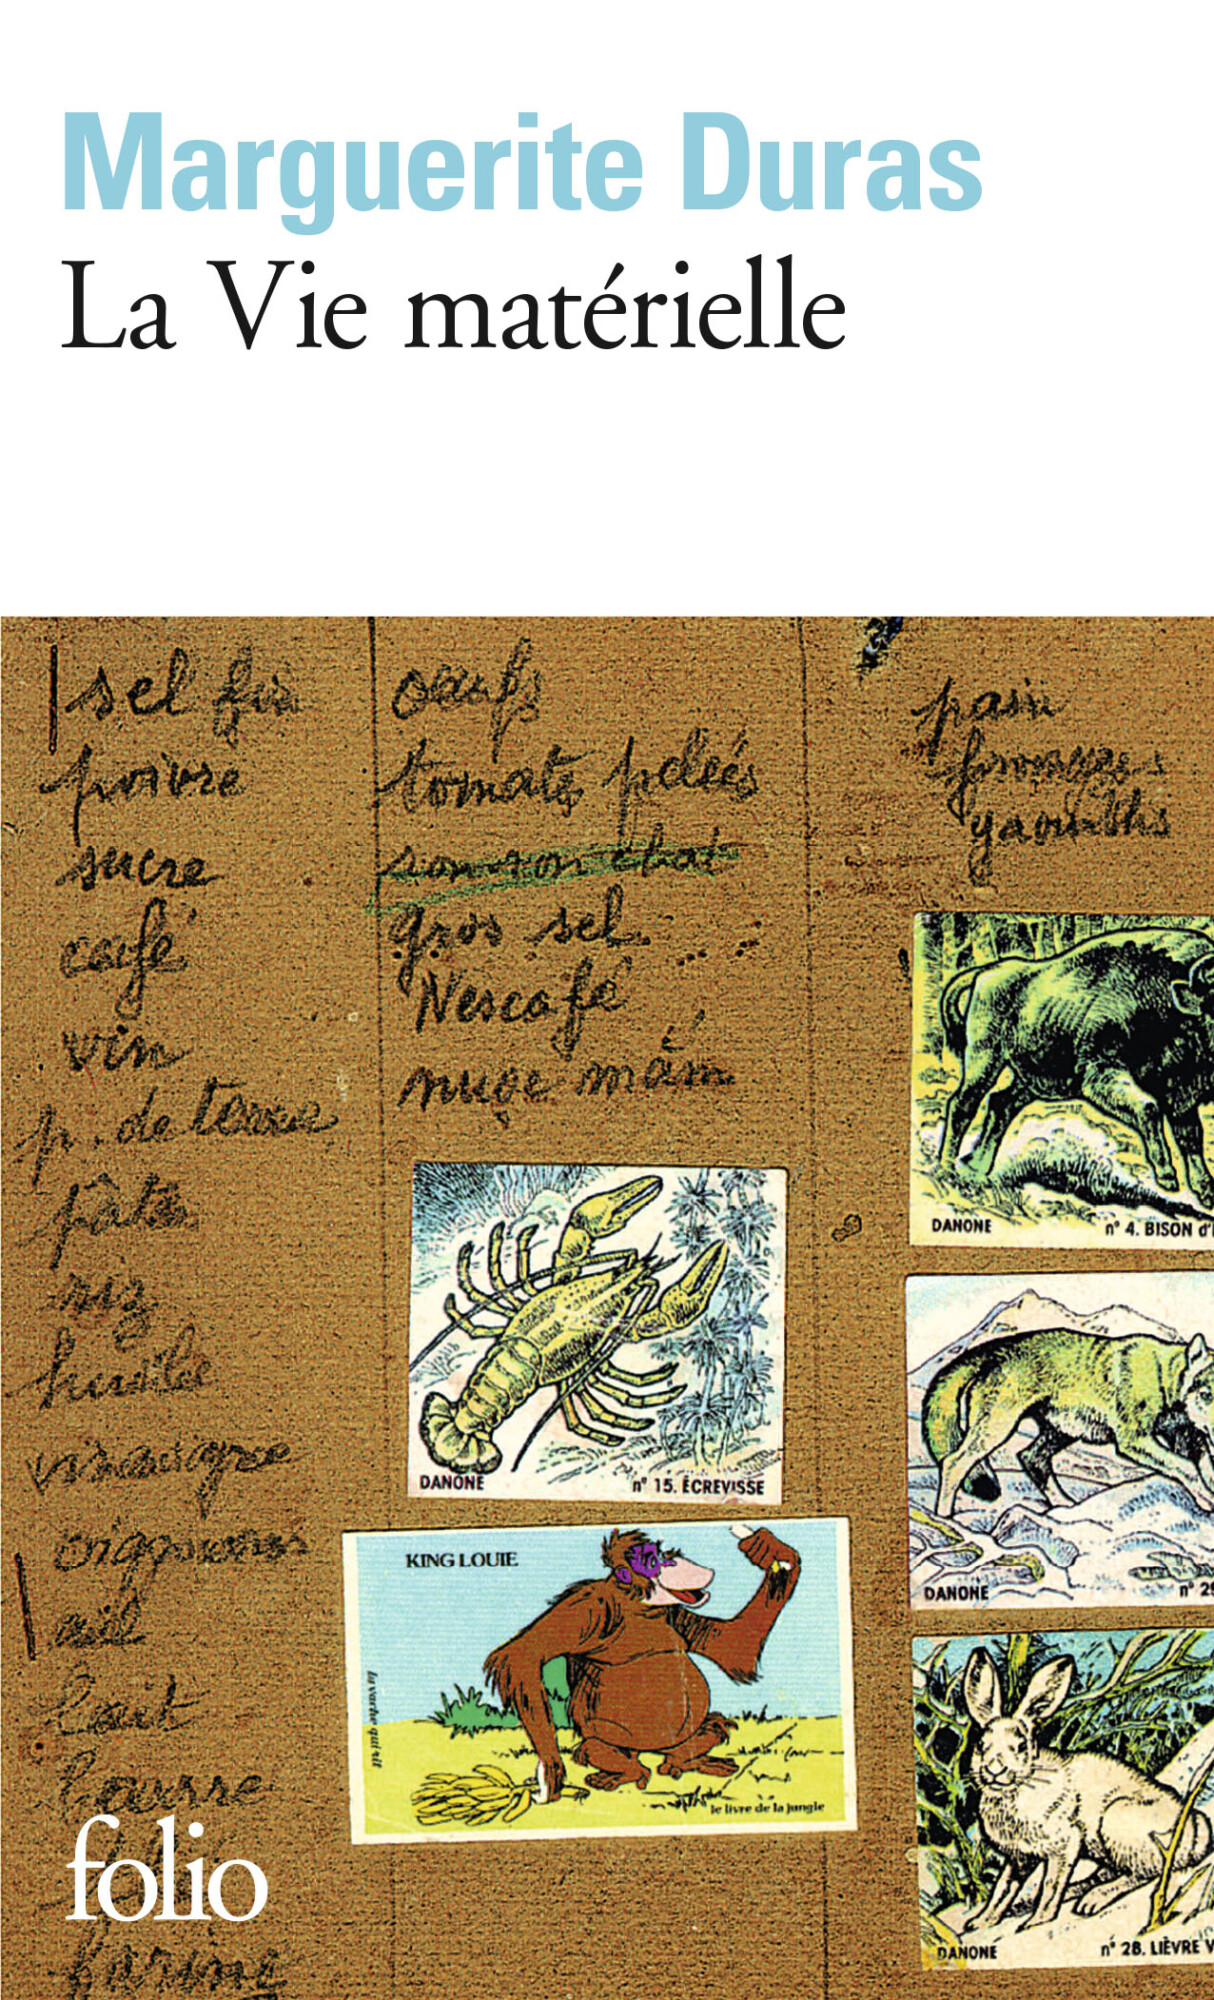 Marguerite Duras
La Vie matérielle
sel fin
poivre
sucre
café
vin
p. de terre
pâtes
riz
huile
vinaigre
oignons
ail
lait
beurre
farine
oeufs
tomates pelées
sopson chat
gros sel
Nescafé
nuoc mâm
pain
fromages
yaourths
DANONE
n° 4. BISON d'
DANONE
n° 15. ÉCREVISSE
DANONE
n° 2
KING LOUIE
la vache qui rit
le livre de la jungle
DANONE
n° 28. LIÈVRE V
folio